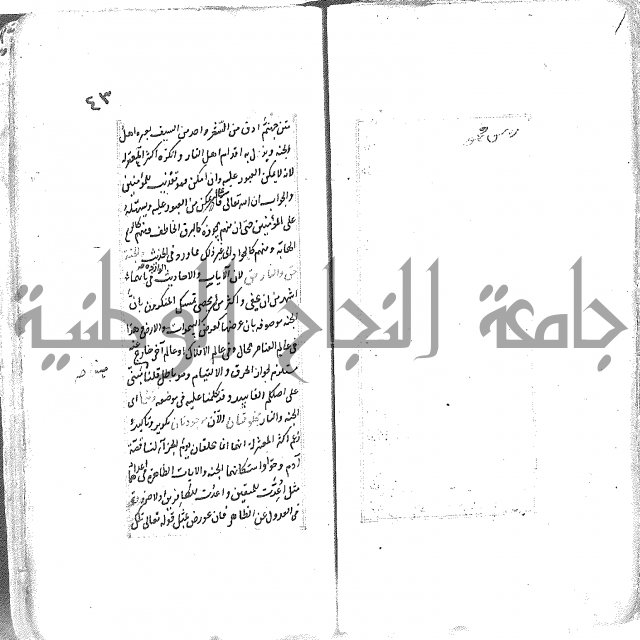 ٤٣
متن جهنم ادق من الشعر واحد من السيف يعبره اهل
الجنة ويزل به اقدام اهل النار وانكره اكثر المعتزلة
لانه لا يمكن العبور عليه وان امكن فهو تعذيب للمؤمنين
والجواب ان الله تعالى قادر يمكن من العبور عليه ويسهله
على المؤمنين حتى ان منهم يجوزه كالبرق الخاطف ومنهم كالريح
الهابة ومنهم كالجواد الى غير ذلك مما ورد في الحديث والجنة
حق والنار حق لان الآيات والاحاديث الواردة في اثباتهما
اشهر من ان تخفى واكثر من ان تحصى تمسك المنكرون بان
الجنة موصوفة بان عرضها كعرض السموات والارض وهذا
في عالم العناصر محال وفي عالم الافلاك او عالم آخر خارج عنه
مستلزم لجواز الخرق والالتيام وهو باطل قلنا مبنى
على اصلكم الفاسد وقد تكلمنا عليه في موضعه وهما اى
الجنة والنار مخلوقتان الآن موجودتان تكرير وتاكيد
وزعم اكثر المعتزلة انهما انما تخلقان يوم الجزاء لنا قصة
آدم وحوا واسكانهما الجنة والايات الظاهرة في اعدادهما
مثل اعدت للمتقين واعدت للكافرين اذ لا ضرورة
في العدول عن الظاهر فان عورض بمثل قوله تعالى تلك
جامعة النجاح الوطنية